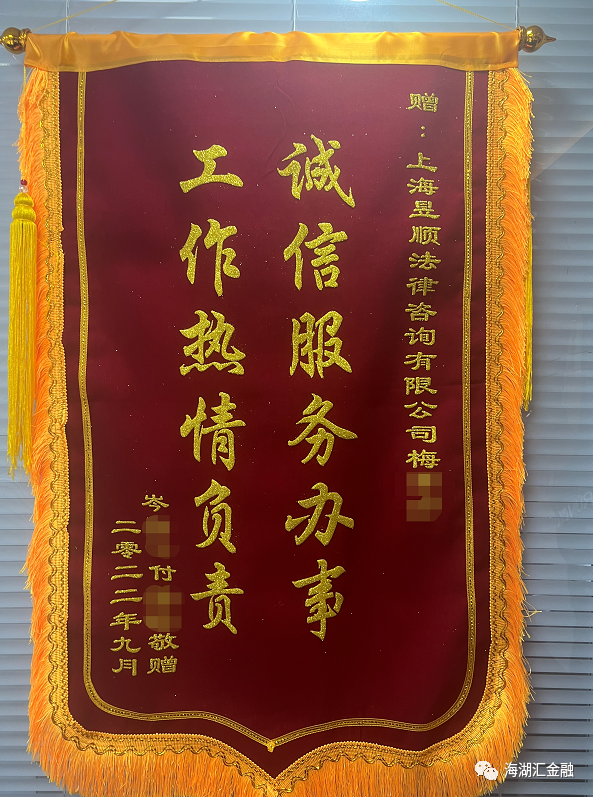 赠：上海昱顺法律咨询有限公司梅
诚信服务办事
工作热情负责
岑 付 敬赠
二零二二年九月
海湖汇金融